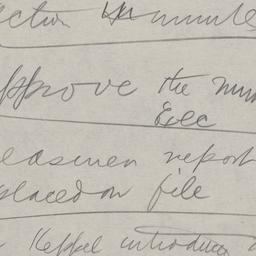 ection minutes
pprove the minu
Exec
easurer report
placed on file
Keppel introduces